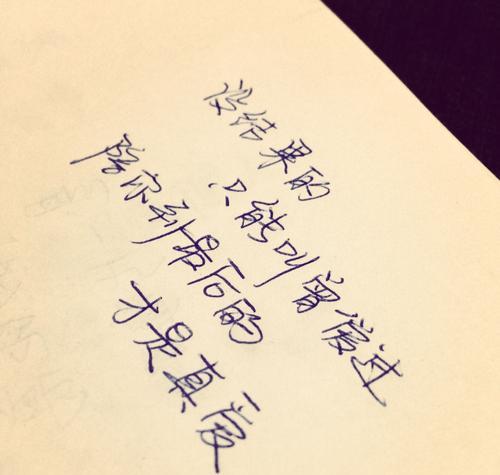 没结果的
只能叫曾爱过
陪你到最后的
才是真爱